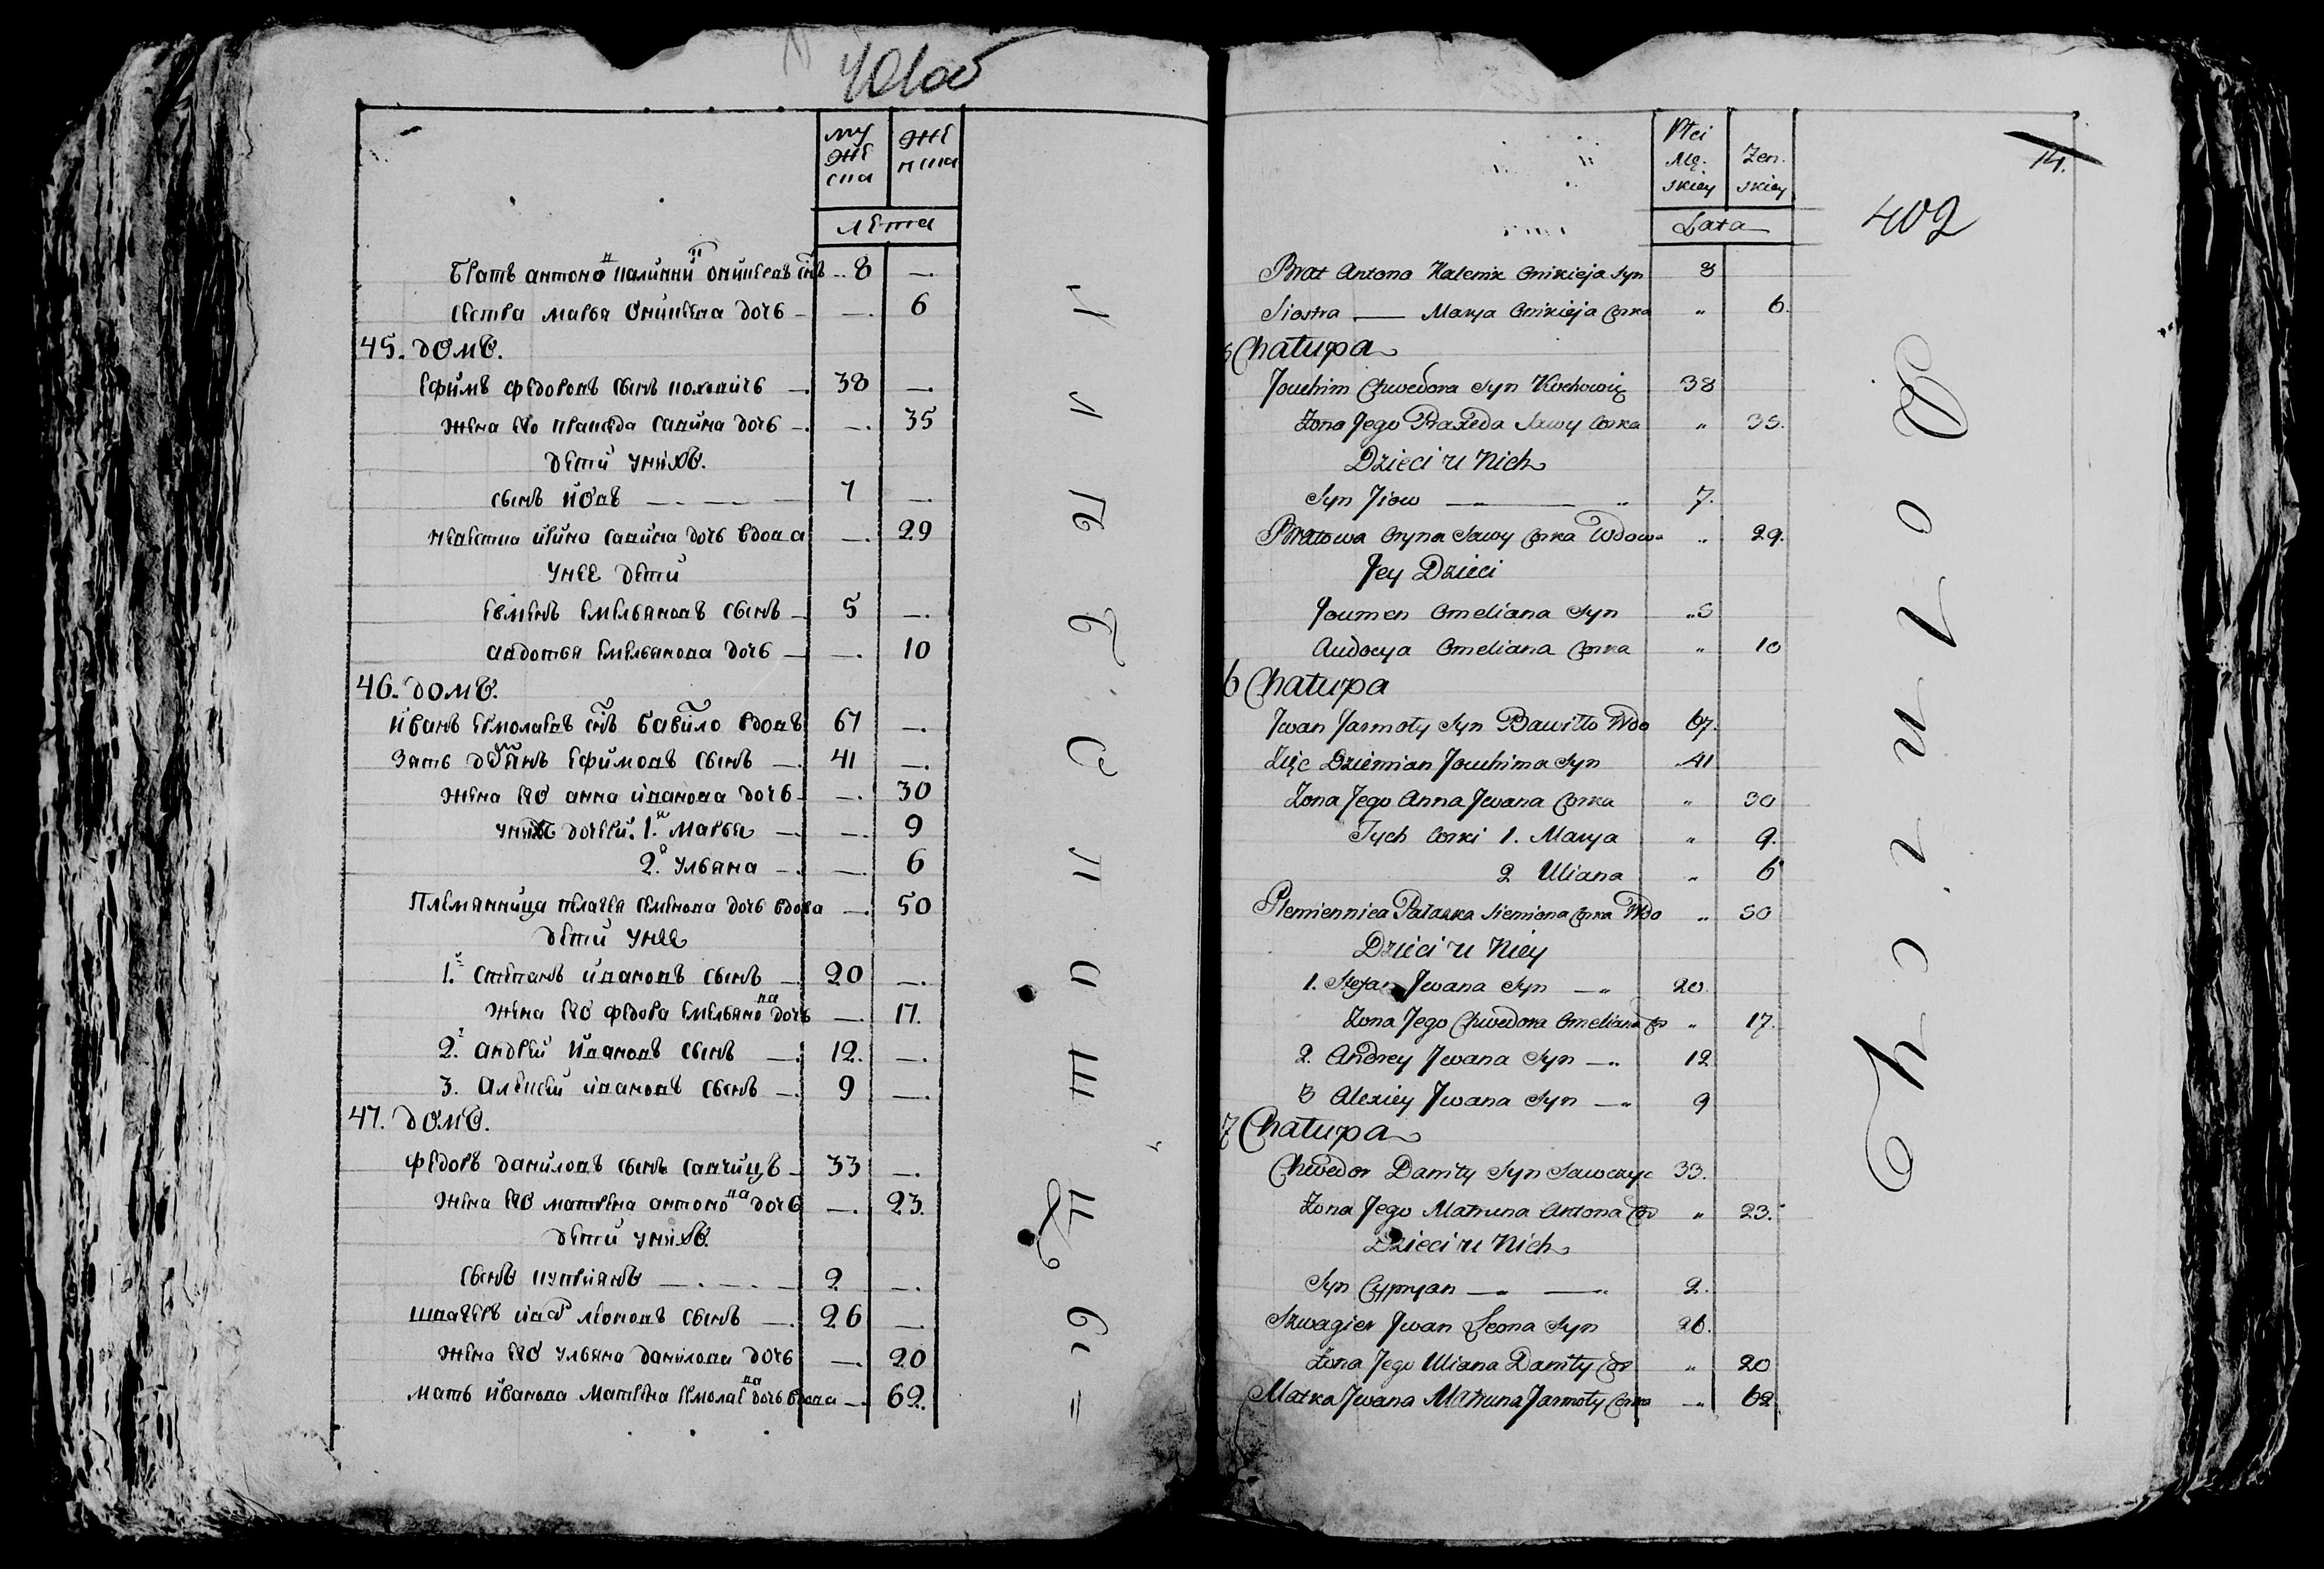 401об
му
же
ска
же
нска
лета
братъ антоно калинни оникеевъ снъ 8 —
сестра марья оникеева дочь — 6
45. домъ.
ефимъ федоровъ сынъ коховичь — 38 —
жена его праксeда савина дочь — — 35
дети унихъ.
сынъ иовъ — 7 —
невестка ирина савина дочь вдова — 29
унее дети
евменъ емельяновъ сынъ — 5 —
авдотья емельянова дочь — — 10
46. домъ.
иванъ ермолаевъ снъ бавило вдовъ 67 —
зять демянъ ефимовъ сынъ — 41 —
жена его анна иванова дочь — — 30
унихъ дочери. 1. марья — — 9
2. ульяна — — 6
племянница пелагея семенова дочь вдова — 50
дети унее
1. степанъ ивановъ сынъ — 20 —
жена его федора емельяно ва дочь — 17.
2. андрей ивановъ сынъ — 12. —
3. алексей ивановъ сынъ — 9 —
47. домъ.
федоръ даниловъ сынъ савчицъ — 33 —
жена его матрена антоно ва дочь — 23.
дети унихъ.
сынъ куприянъ — 2 —
швагеръ ива леоновъ сынъ — 26 —
жена его ульяна данилова дочь — 20
мать иванова матрена ермолае ва дочь вдова — 62.
Płci
Mę.
skiey
Zen.
skiey
Lata
14.
402
Brat Antona Kalenik Onikieja Syn 8
Siostra — Marya Onikieja Corka " 6.
Chałupa
Jouchim Chwedora Syn Kochowicz 38
Zona Jego Praxeda Sawy Corka " 35.
Dzieci u Nich
Syn Jiow — " 7.
Bratowa Oryna Sawy Corka Wdowa " 29.
Jey Dzieci
Joumen Omeliana Syn "5
Audocya Omeliana Corka " 10
6 Chałupa
Jwan Jarmoły Syn Bawiłło Wdo 67.
Zięc Dziemian Jouchima Syn 41
Zona Jego Anna Jwana Corka " 30
Tych Corki 1. Marya " 9.
2 Uliana " 6
Plemiennica Pałaska Siemiona Corka Wdo " 50
Dzieci u Niey
1. Stefan Jwana Syn — " 20.
Zona Jego Chwedora Omeliana Co " 17.
2. Andrey Jwana Syn — " 12
3 Alexiey Jwana Syn — " 9
7 Chałupa
Chwedor Daniły Syn Sawczyc 33.
Zona Jego Matruna Antona Co " 23.
Dzieci u Nich
Syn Cypryan — " 2.
Szwagier Jwan Leona Syn 26.
Zona Jego Uliana Daniły Co " 20
Matka Jwana Matruna Jarmoły Corka — " 62